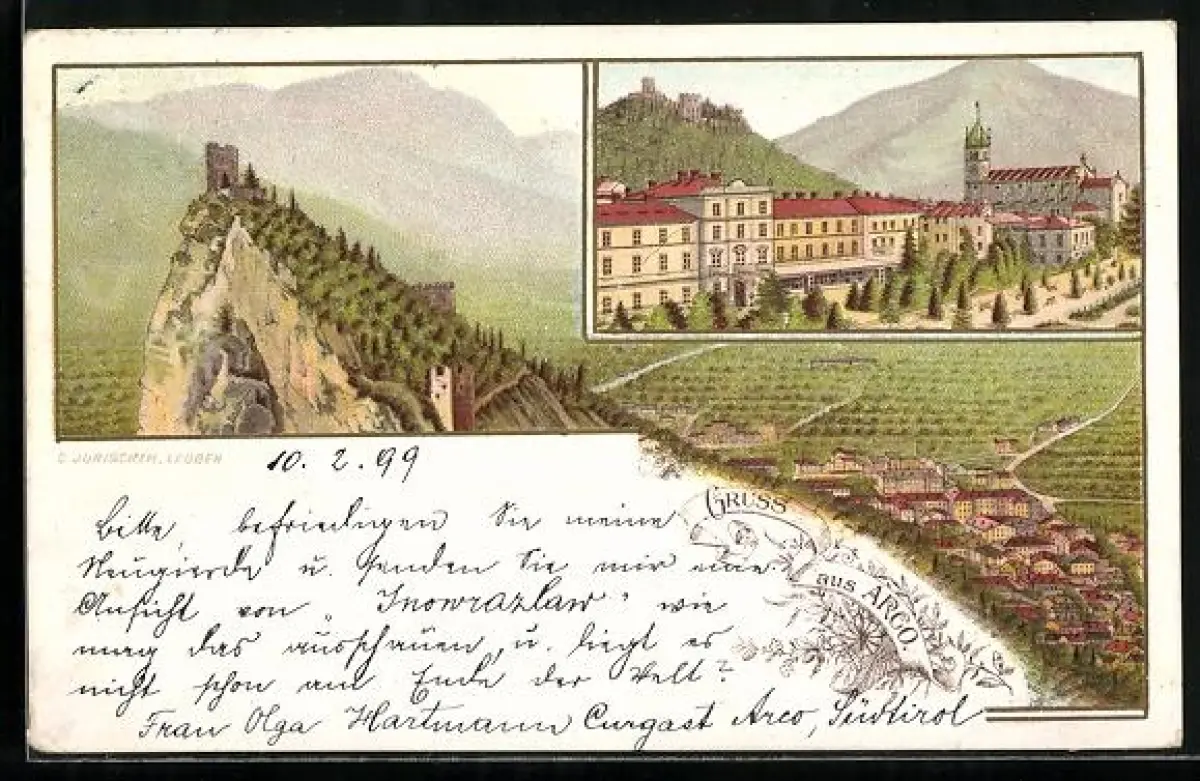 C. JURISCHEK, LEOBEN
10. 2. 99
GRUSS
aus ARCO.
Bitte, befriedigen Sie meine
Neugierde u. senden Sie mir eine
Ansicht von „Inowrazlaw" wie
mag das ausschauen, u. liegt es
nicht schon am Ende der Welt?
Frau Olga Hartmann Curgast Arco, Südtirol